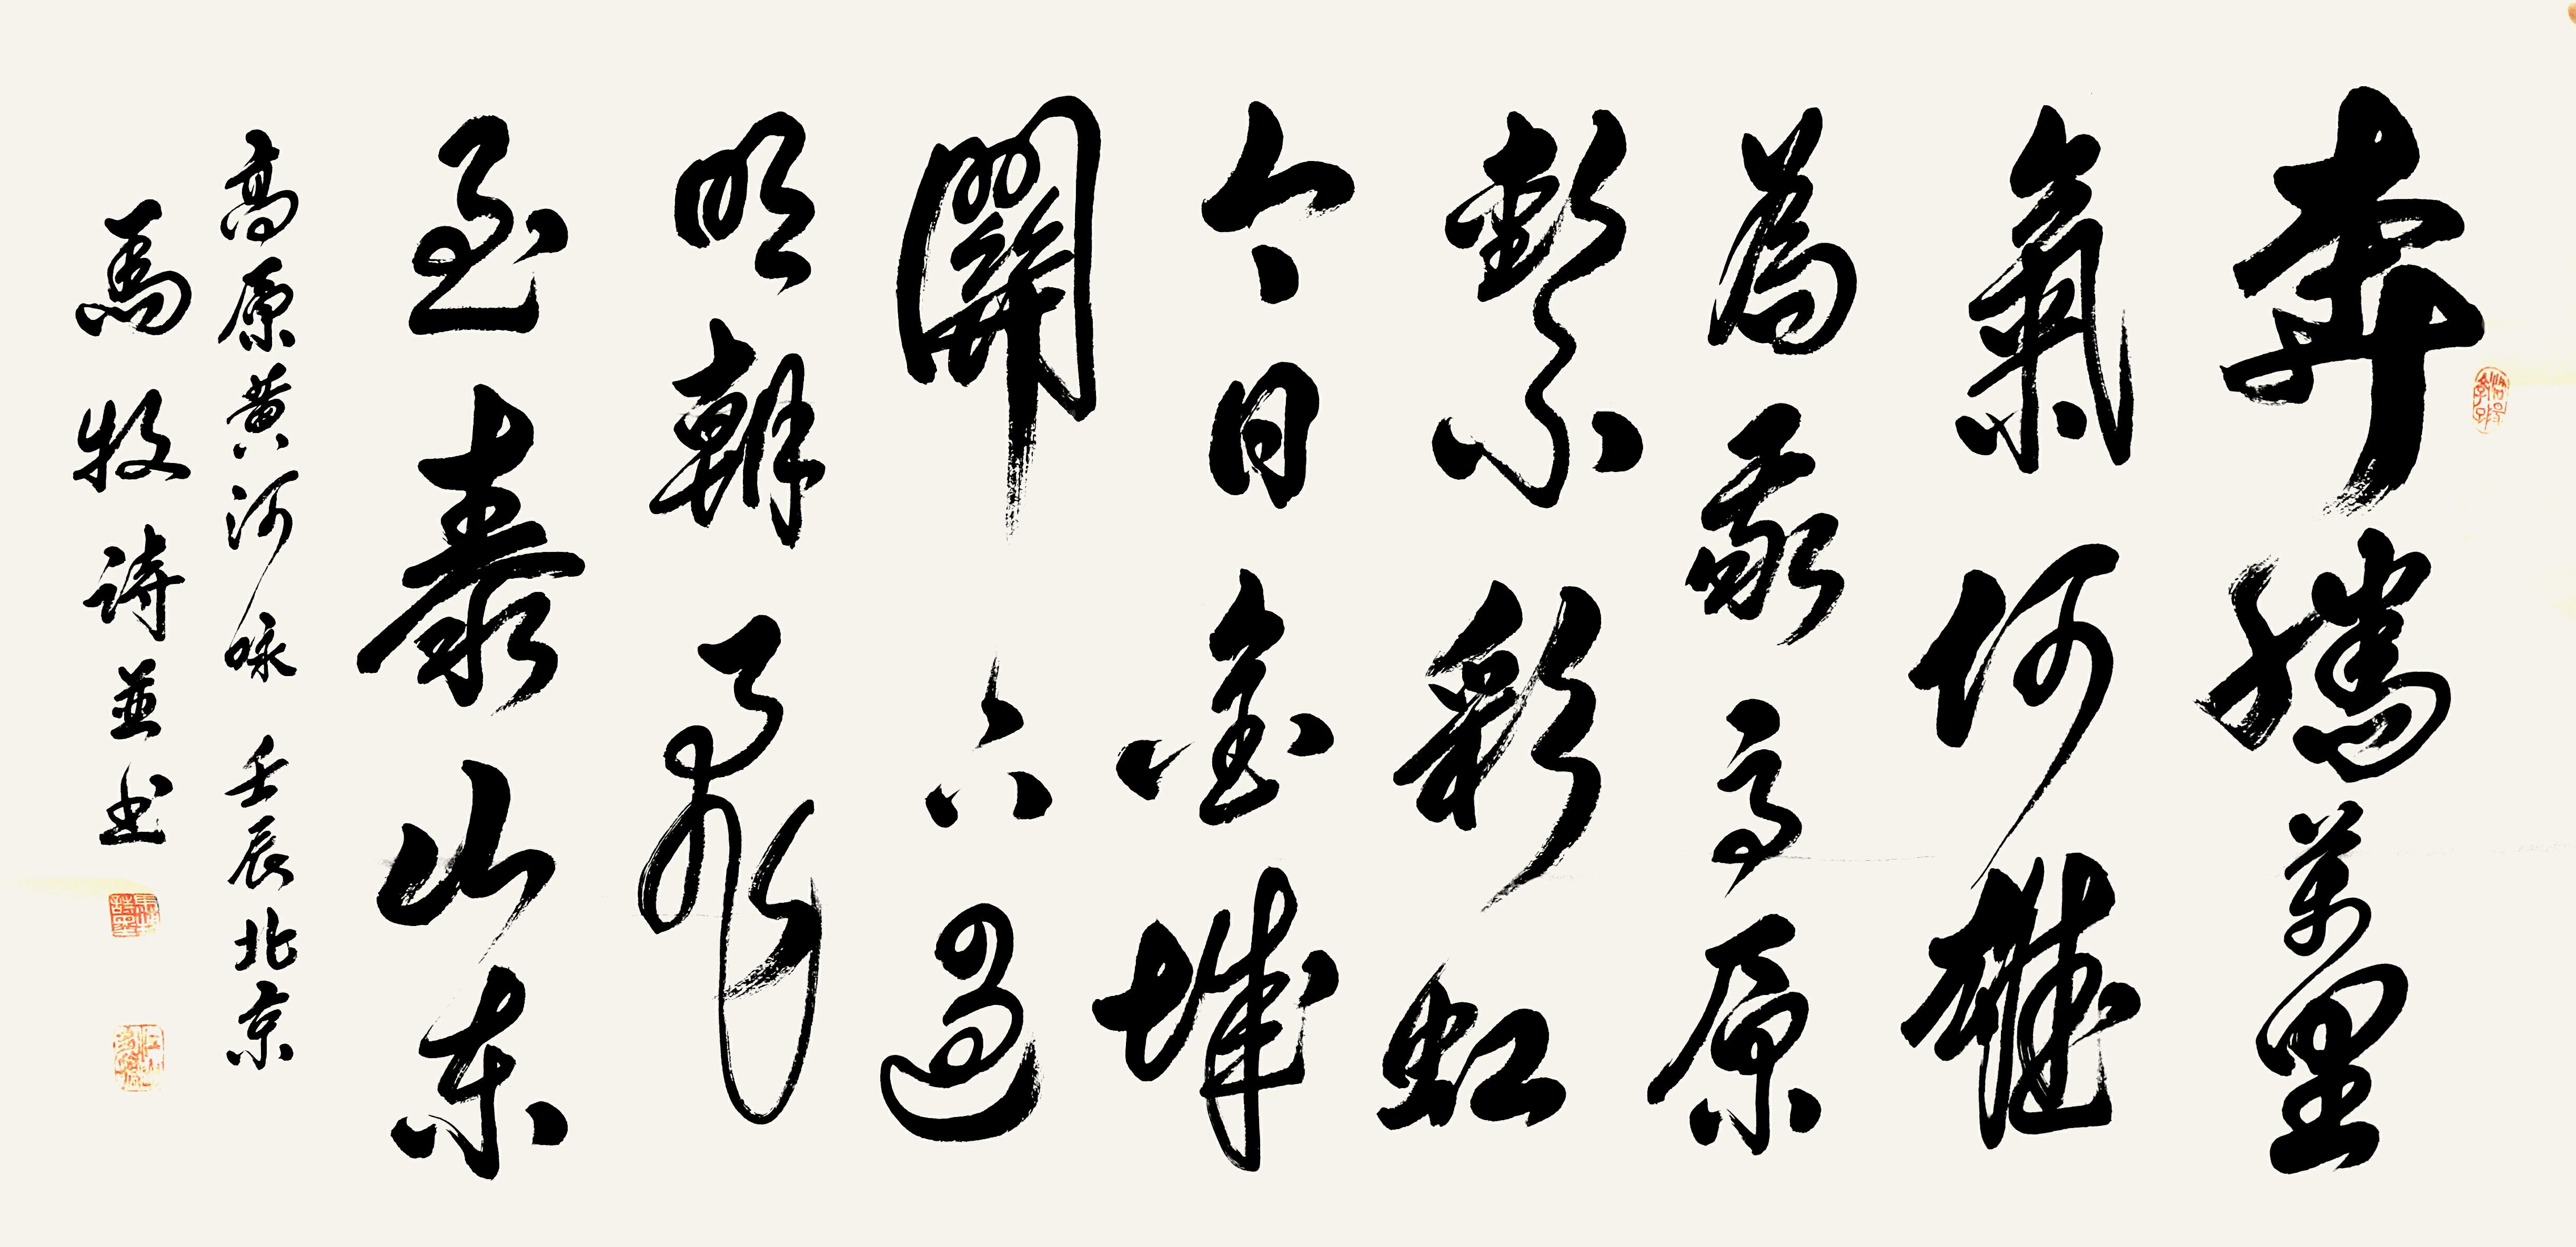 奔騰萬里
氣何雄
為我高原
繫彩虹
今日金城
關下過
明朝飛
至泰山東
高原黄河咏 壬辰北京
馬牧詩並书